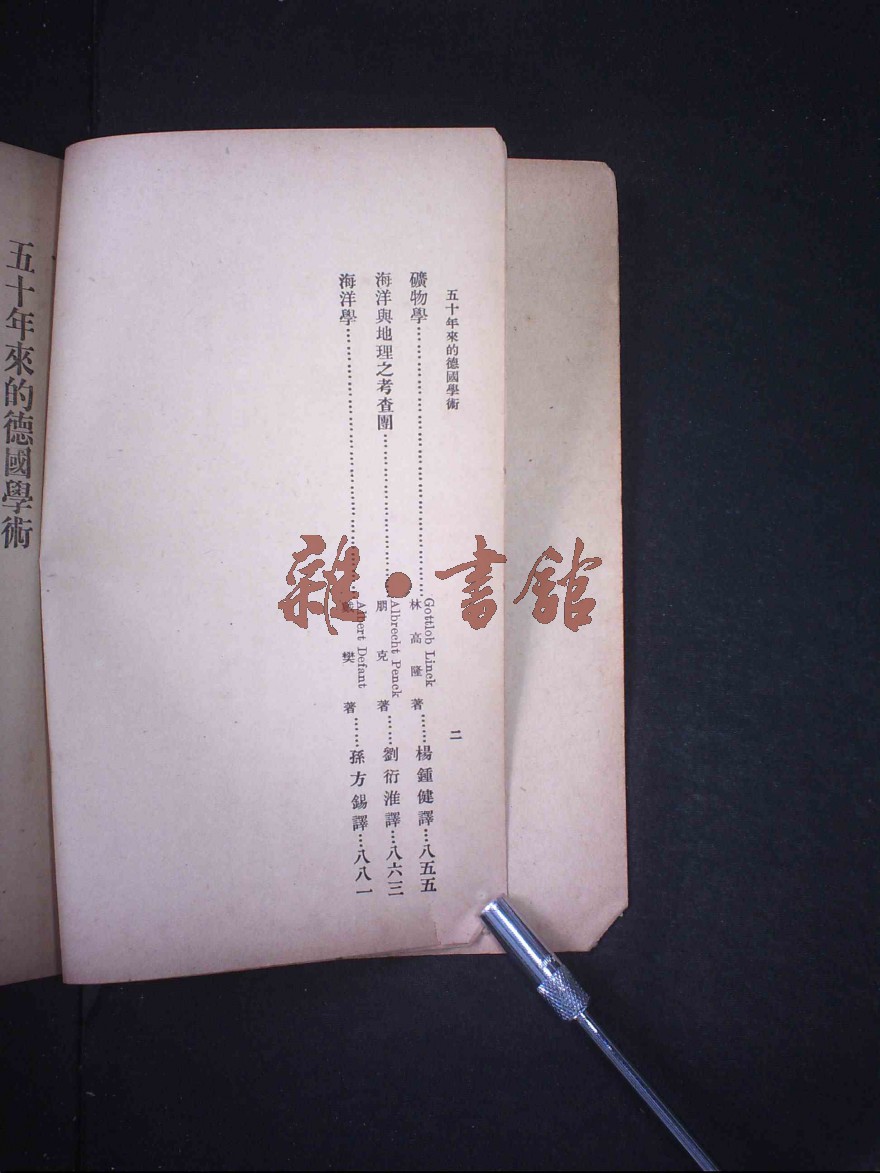 五十年來的德國學術
二
礦物學……Gottlob Linck 林高隆 著……楊鍾健譯…八五五
海洋與地理之考查團……Albrecht Penck 朋克 著……劉衍淮譯…八六三
海洋學……Albert Defant 樊 著……孫方錫譯…八八一
五十年來的德國學術
雜·書館